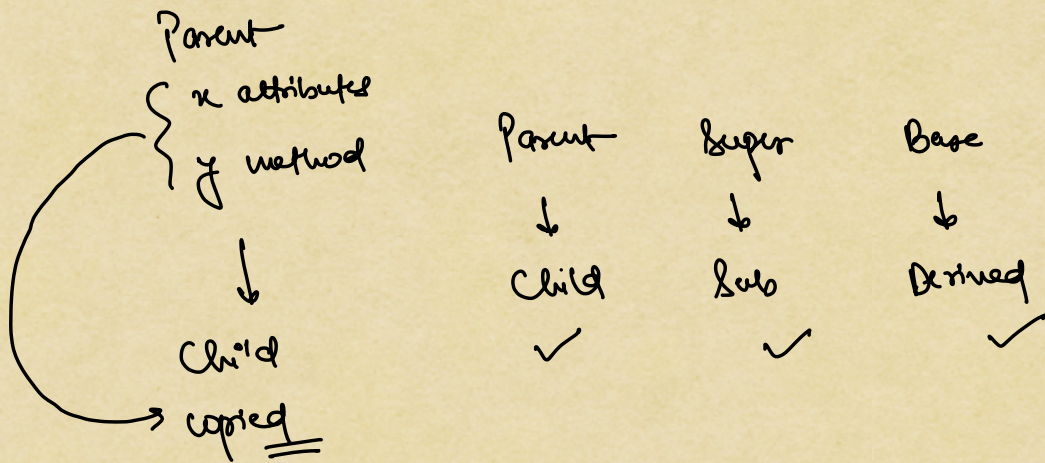 Parent
x attributes
y method
Child
copied
Parent Super Base
Child Sub Derived